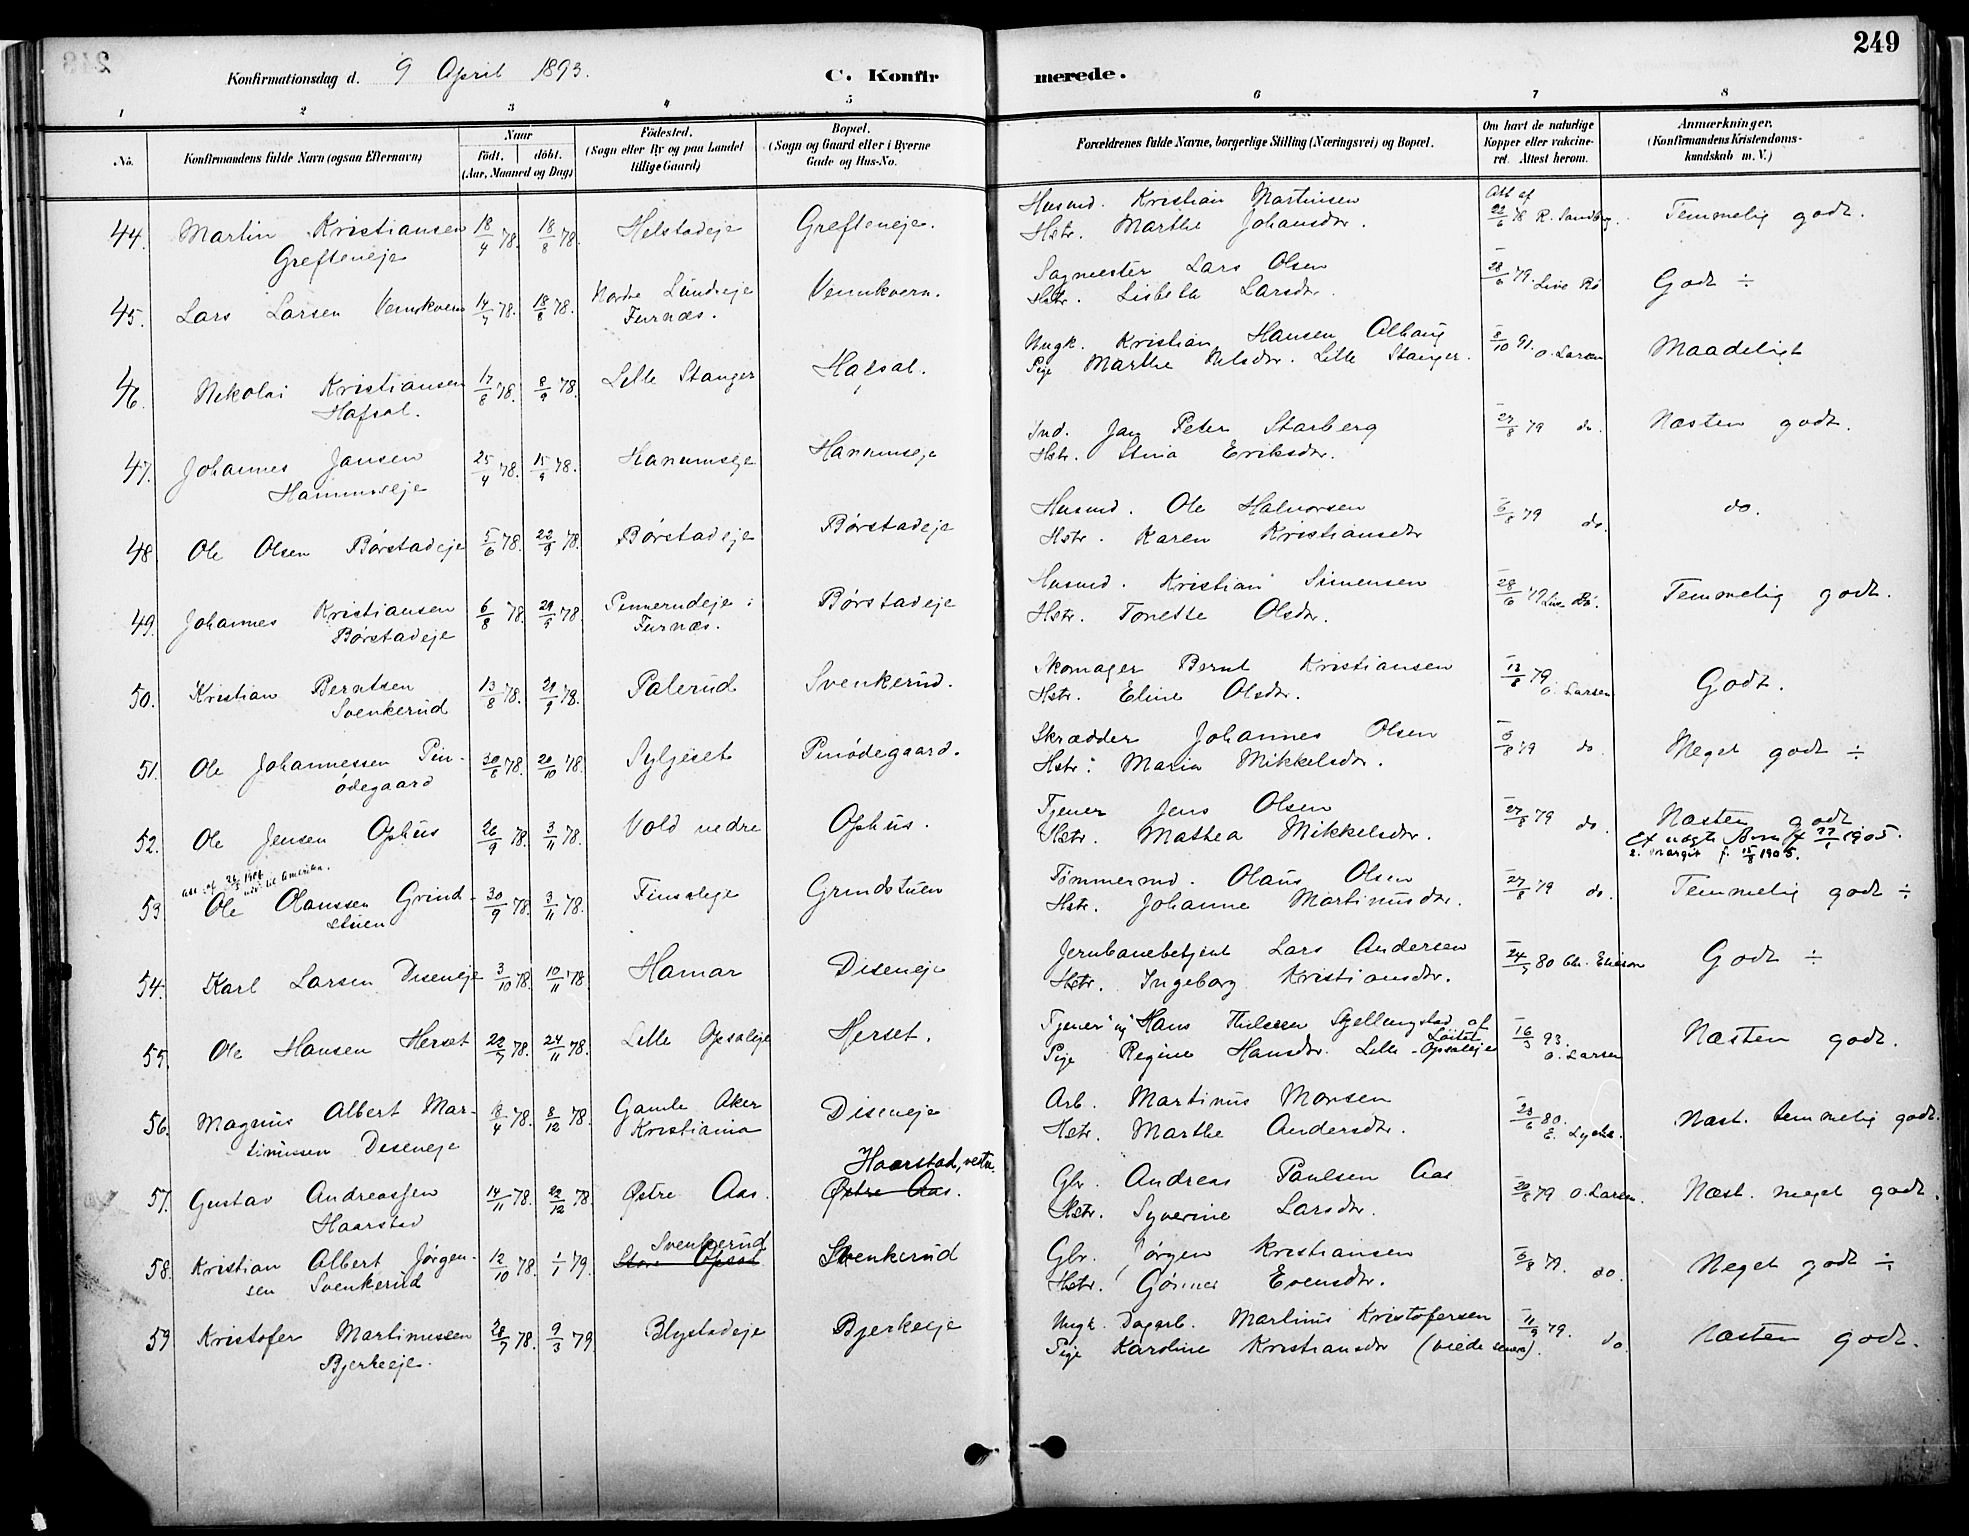 249
Konfirmationsdag d. 9 April 1893.
C. Konfirmerede.
1 2 3 4 5 6 7 8
No.
Konfirmandens fulde Navn (ogsaa Efternavn)
Naar
født. døbt.
(Aar, Maaned og Dag)
Fødested.
(Sogn eller By og paa Landet
tillige Gaard)
Bopæl.
(Sogn og Gaard eller i Byerne
Gade og Hus-No.
Forældrenes fulde Navne, borgerlige Stilling (Næringsvei) og Bopæl.
Om havt de naturlige
Kopper eller vakcine-
ret. Attest herom.
Anmærkninger.
(Konfirmandens Kristendoms-
kundskab m. V.)
44. Martin Kristiansen 18/4 78. 18/8 78. Helstadeje Grefteneje. Husmd. Kristian Martinsen Att af 22/6 78 R. Sandberg. Temmelig godt.
Grefteneje Hstr. Marthe Johansdr.
45. Lars Larsen Vennkvern 14/7 78. 18/8 78. Nordre Lundseje Vennkvern. Sagmester Lars Olsen 28/6 79. Live Bø Godt ÷
Furnæs. Hstr. Lisbeth Larsdr.
46. Nikolai Kristiansen 17/8 78. 8/9 78. Lille Stanger Hafsal. Ungk. Kristian Hansen Alhaug 8/10 91. O. Larsen Maadeligt
Hafsal. Pige Marthe Nilsdr. Lille Stanger.
47. Johannes Jansen 25/4 78. 15/9 78. Hanumseje Hanumseje Ind. Jan Peter Starberg 27/8 79 do. Næsten godt.
Hanumseje Hstr. Stina Eriksdr.
48. Ole Olsen Børstadeje 5/6 78. 22/9 78. Børstadeje Børstadeje Husmd. Ole Halvorsen 6/8 79 do. do.
Hstr. Karen Kristiansdr
49. Johannes Kristiansen 6/8 78. 29/9 78. Pennerudeje i Børstadeje Husmd. Kristian Simensen 28/6 79 Live Bø. Temmelig godt.
Børstadeje Furnæs. Hstr. Tonette Olsdr.
50. Kristian Berntsen 13/8 78. 29/9 78. Palerud Svenkerud. Skomager Bernt Kristiansen 13/8 79 O. Larsen Godt.
Svenkerud Hstr. Eline Olsdr.
51. Ole Johannessen Pin- 30/6 78. 20/10 78. Syljeset Pinødegaard. Skrædder Johannes Olsen 6/8 79 do. Meget godt ÷
ødegaard Hstr. Maria Mikkelsdr.
52. Ole Jensen Ophus 26/9 78. 3/11 78. Vold nedre Ophus. Tjener Jens Olsen 27/8 79 do. Næsten godt
Hstr. Mathea Mikkelsdr.
1905.
1905.
att. af 1904
til Amerika.
53. Ole Olaussen Grind- 30/9 78. 3/11 78. Finsaleje Grindstuen Tømmermd. Olaus Olsen 27/8 79 do. Temmelig godt ÷
stuen Hstr. Johanne Martinusdr.
54. Karl Larsen Diseneje 3/10 78. 10/11 78. Hamar Diseneje Jernbanebetjent Lars Andersen 24/5 80 Chr. Godt ÷
Hstr. Ingeborg Kristiansdr.
55. Ole Hansen Herset 22/9 78. 24/11 78. Lille Opsaleje Herset. Tjener Hans Skjellengstad af Løiten 16/3 93. O. Larsen Næsten godt.
Pige Regine Hansdr. Lille Opsaleje
56. Magnus Albert Mar- 18/4 78. 8/12 78. Gamle Aker Diseneje Arb. Martinus Monsen 23/6 80. Næst. temmelig godt.
tinussen Diseneje Kristiania Hstr. Marthe Andersdr.
57. Gustav Andreassen 14/11 78. 22/12 78. Østre Aas. Haarstad, vestr. Østre Aas. Gbr. Andreas Paulsen Aas 20/8 79 O. Larsen. Næst. meget godt.
Haarstad Hstr. Syverine Larsdr.
58. Kristian Albert Jørgen- 12/10 78. 1/1 79. Svenkerud Store Opsal Svenkerud Gbr. Jørgen Kristiansen 6/8 79. do. Meget godt ÷
sen Svenkerud Hstr. Gønner Evensdr.
59 Kristofer Martinussen 28/7 78. 9/3 79. Blystadeje Bjerkeeje Ungk. Dagarb. Martinus Kristofersen 11/9 79. do Næsten godt.
Bjerkeeje. Pige Karoline Kristiansdr (viede senere).